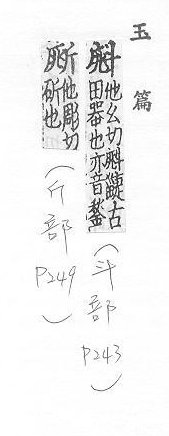 玉篇
他幺切
古
田器也亦音鍫
(斗部 P243)
他彫切
斫也
(斤部 P249)